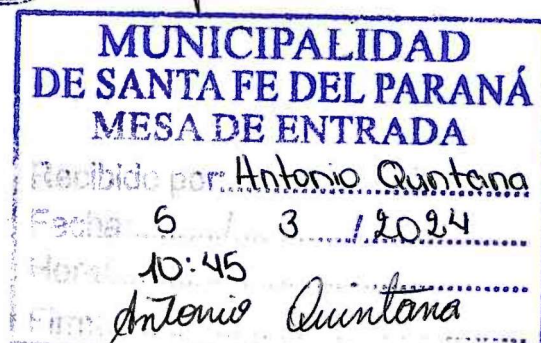 MUNICIPALIDAD
DE SANTA FE DEL PARANÁ
MESA DE ENTRADA
Recibido por: Antonio Quintana
Fecha 5 / 3 / 2024
Hora: 10:45
Firma Antonio Quintana